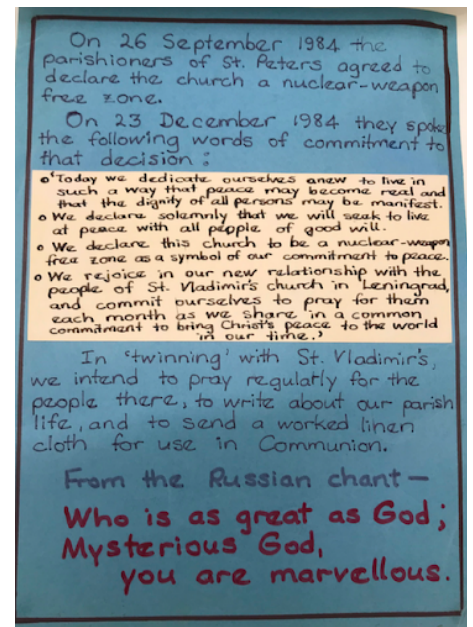 On 26 September 1984 the
parishioners of St. Peters agreed to
declare the church a nuclear-weapon
free zone.
On 23 December 1984 they spoke
the following words of commitment to
that decision :
o 'Today we dedicate ourselves anew to live in
such a way that peace may become real and
that the dignity of all persons may be manifest.
o We declare solemnly that we will seek to live
at peace with all people of good will.
o We declare this church to be a nuclear-weapon
free zone as a symbol of our commitment to peace.
o We rejoice in our new relationship with the
people of St. Vladimir's church in Leningrad,
and commit ourselves to pray for them
each month as we share in a common
commitment to bring Christ's peace to the world
in our time.'
In 'twinning' with St. Vladimir's,
we intend to pray regularly for the
people there, to write about our parish
life, and to send a worked linen
cloth for use in Communion.
From the Russian chant—
Who is as great as God;
Mysterious God,
you are marvellous.